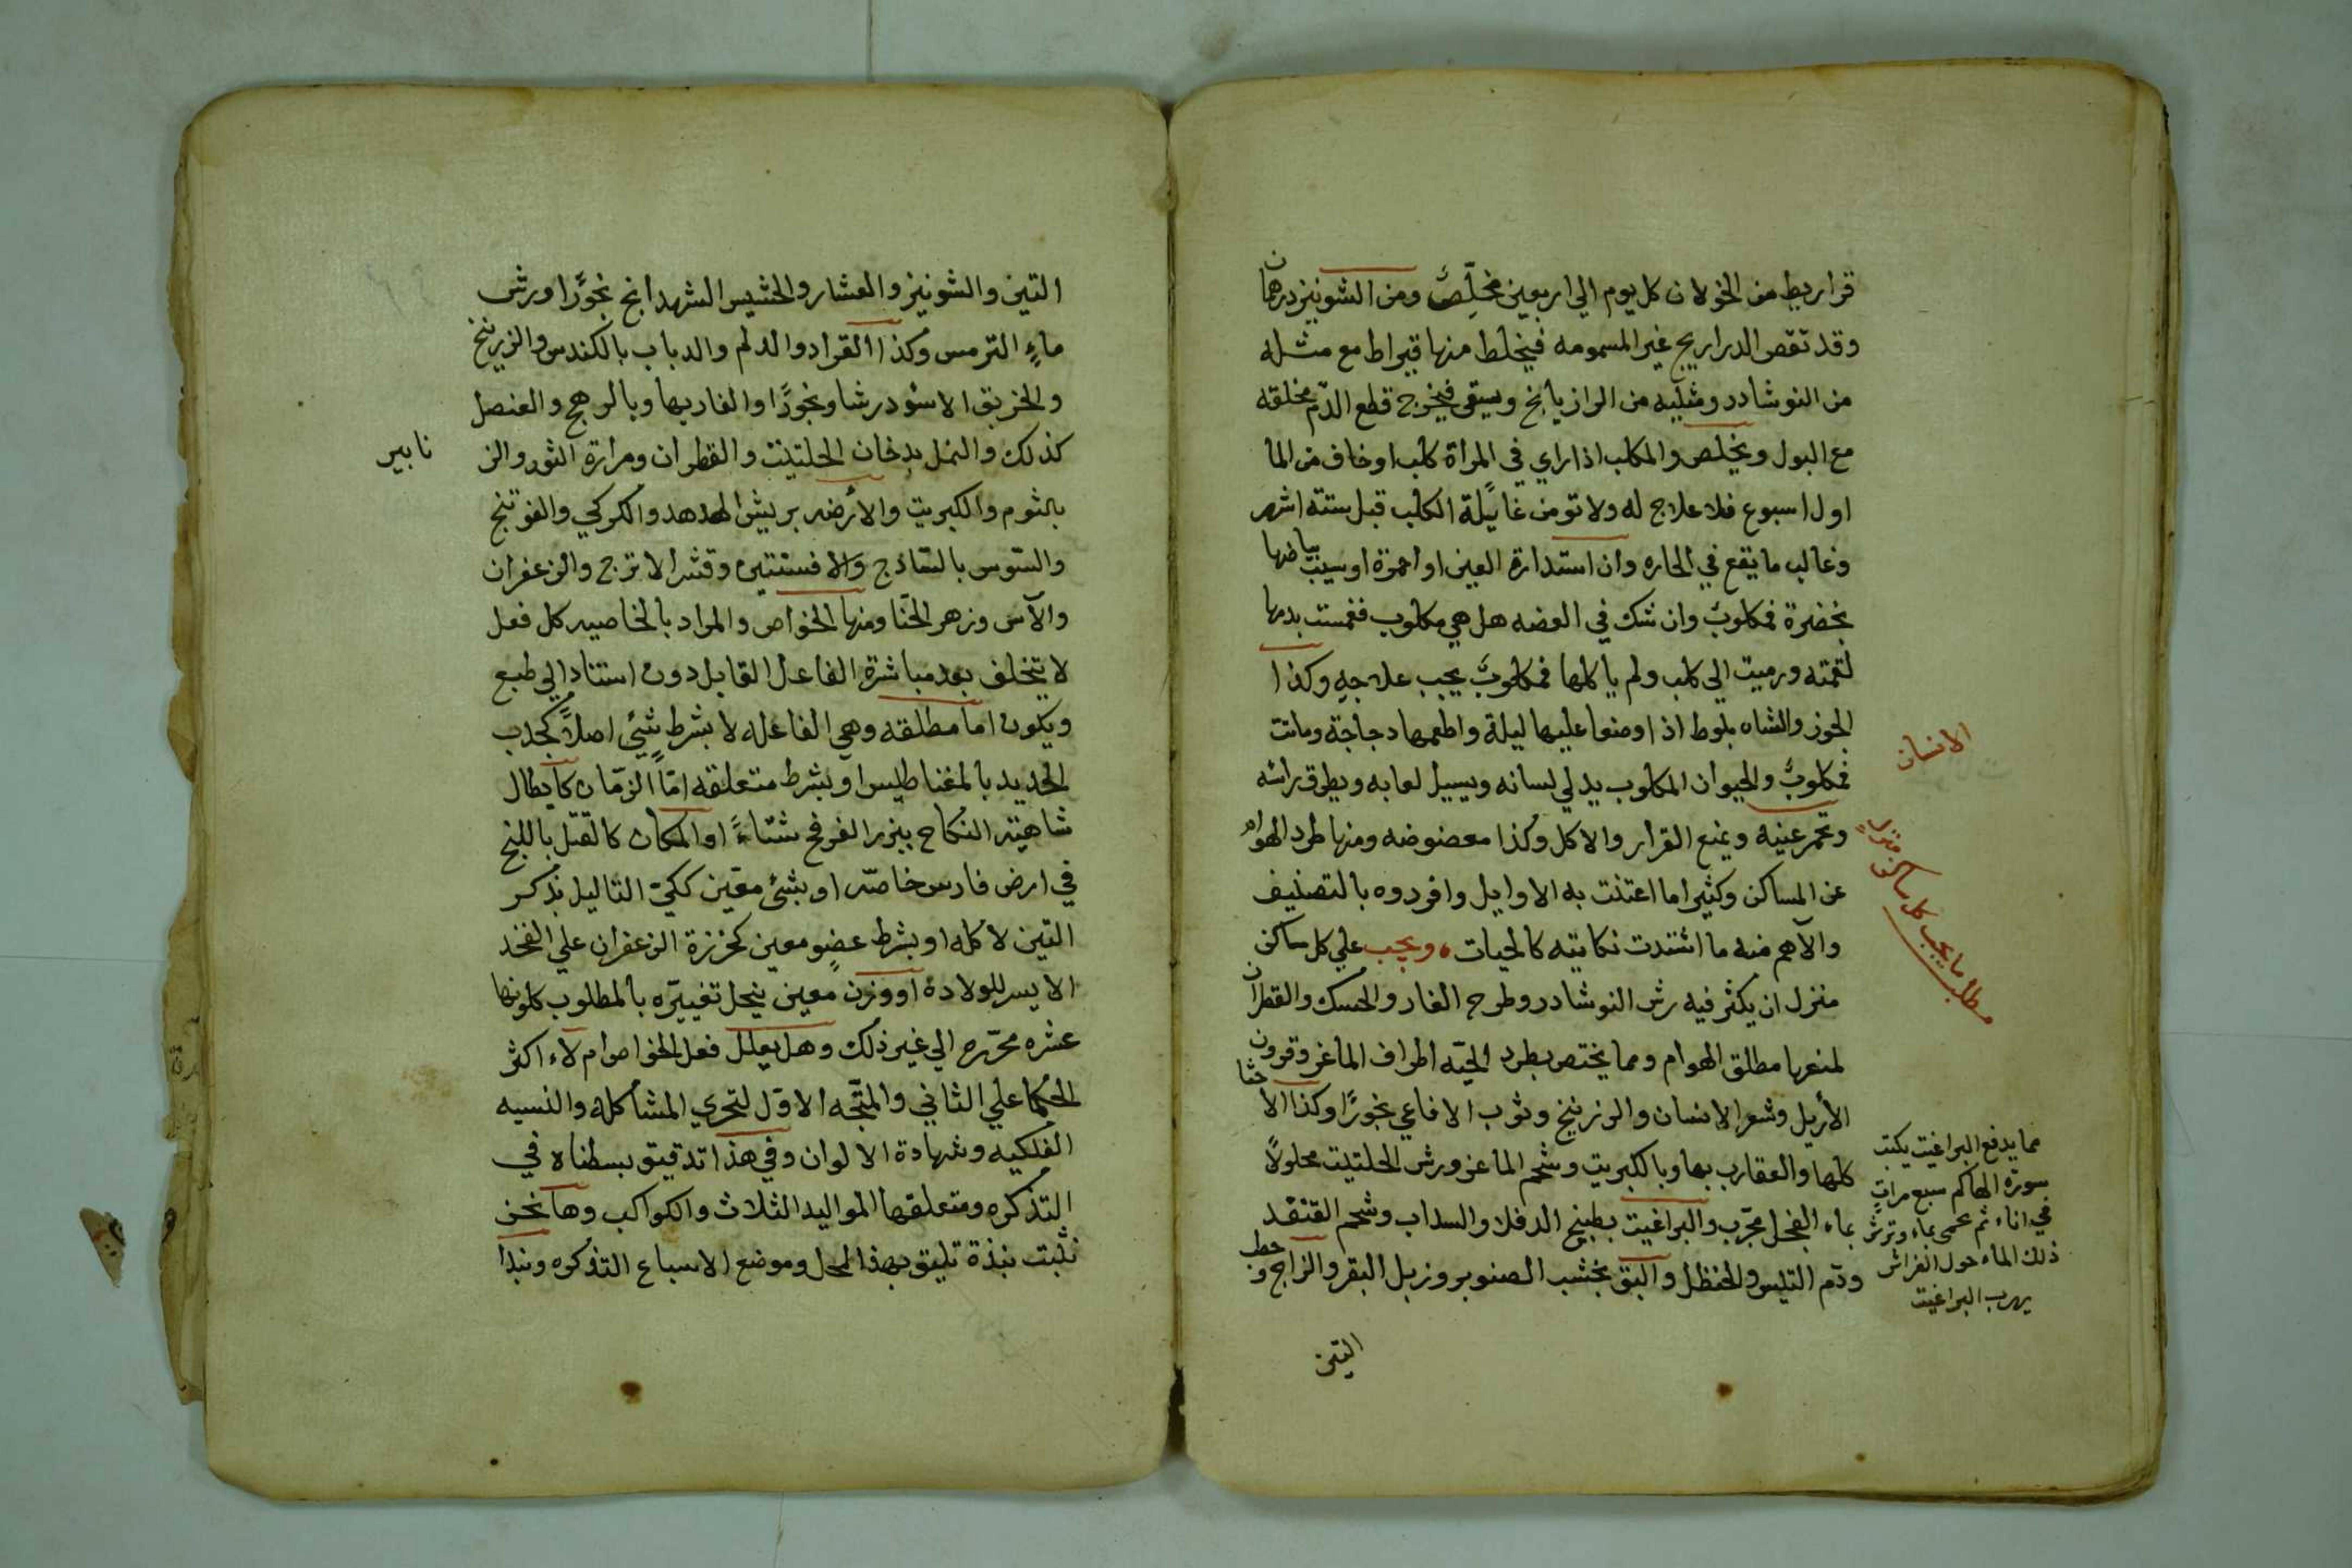 قراريط من الخولان كل يوم الي اربعين مخلِّصٌ ومن الشونيز درهمان
وقد تقص الدراريج غير المسمومه فيخلط منها قيراط مع مثله
من النوشادر ومثليه من الرازيانج ويسقى فيخرج قطع الدّم مخلقه
مع البول ويخلص والمكلب اذا راي في المرأة كلبا او خاف من الما
اول اسبوع فلا علاج له ولا تومن غايلة الكلب قبل ستة اشهر
وغالب ما يقع في الحاره وان استدارة العين او احمرة او سيب بياضها
بخضرة فمكلوبٌ وان شك في العضه هل هي مكلوب فغمست بدمها
لقمته ورميت الي كلب ولم ياكلها فمكلوبٌ يجب علاجه وكذا
الجوز والشاه بلوط اذا وضعا عليها ليلة واطعمها دجاجة وماتت
فمكلوبٌ والحيوان المكلوب يدلي لسانه ويسيل لعابه ويطرق راسه
وتحمر عينيه ويمنع القرار والاكل وكذا معضوضه ومنها طرد الهوام
عن المساكن وكثيرا ما اعتنت به الاوايل وافردوه بالتصنيف
والآهم منه ما اشتدت نكايته كالحيات • ويجب علي كل ساكن
منزل ان يكثر فيه رش النوشادر وطرح الغار والحسك والقطران
لمنعها مطلق الهوام ومما يختص بطرد الحيّه اظراف الماعز وقرون
الأريل وشعر الانسان والزرنيخ وثوب الافاعي بخورًا وكذا الاخثا
كلها والعقارب بها وبالكبريت وشحم الماعز ورش الحلتيت محلولاً
بماء الفجل مجرّب والبراغيت بطبيخ الدفلا والسداب وشحم القنفد
ودّم التيس والحنظل والبق بخشب الصنوبر وزبل البقر والزاج وحطب
التين
الانسان
مطلب ما يجب كل ساكن منزل
مما يدفع البراغيت يكتب
سورة الهاكم سبع مراتٍ
في اناء ثم تمحى بماء وترش
ذلك الماء حول الفراش
يهرب البراغيت
التين والشونيز والعشار والحشيس الشهدانج بخورًا ورش
ماءٍ الترمس وكذا القراد والدلم والدباب بالكندس والزرنيخ
والخربق الاسود رشا وبخورًا والفار بها وبالرهج والعنصل
كذلك والنمل بدخان الحلتيت والقطران ومرارة الثور والز
نابير
بالثوم والكبريت والأرضه بريش الهدهد والكركي والفوتنج
والسّوس بالسّاذج والافسنتين وقشر الاترج والزعفران
والآس وزهر الحنّا ومنها الخواص والمراد بالخاصيه كل فعل
لا يتخلف بعد مباشرة الفاعل القابل دون استناد الي طبع
ويكون اما مطلقه وهي الفاعله لا بشرط شئٍ اصلاً كجدب
الحديد بالمغناطيس او بشرط متعلقه امّا الزمّان كابطال
شاهيته النكاح ببزر الفرفخ شتاءً او المكان كالقتل باللبخ
في ارض فارس خاصّه او بشئ معّين ككيّ التاليل بذكر
التين لاكله او بشرط عضوٍ معين كخرزة الزعفران علي الفخد
الايسر للولادة او وزن معين ينحل تغييّره بالمطلوب كلونها
عشره محرّره الي غير ذلك وهل يعلل فعل الخواص ام لاء اكثر
الحكما علي الثاني والمتّجه الاول لتحري المشاكله والنسيه
الفلكيه وشهادة الالوان وفي هذا تدقيق بسطناه في
التذكره ومتعلقها المواليد الثلاث والكواكب وها نحن
نثبت نبذة تليق بهذا المحل وموضع الاسباع التذكره ونبدا